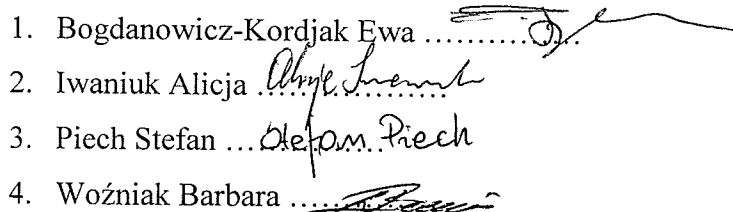 1. Bogdanowicz-Kordjak Ewa ............
2. Iwaniuk Alicja ..................
3. Piech Stefan ............ Stefan Piech
4. Woźniak Barbara ......